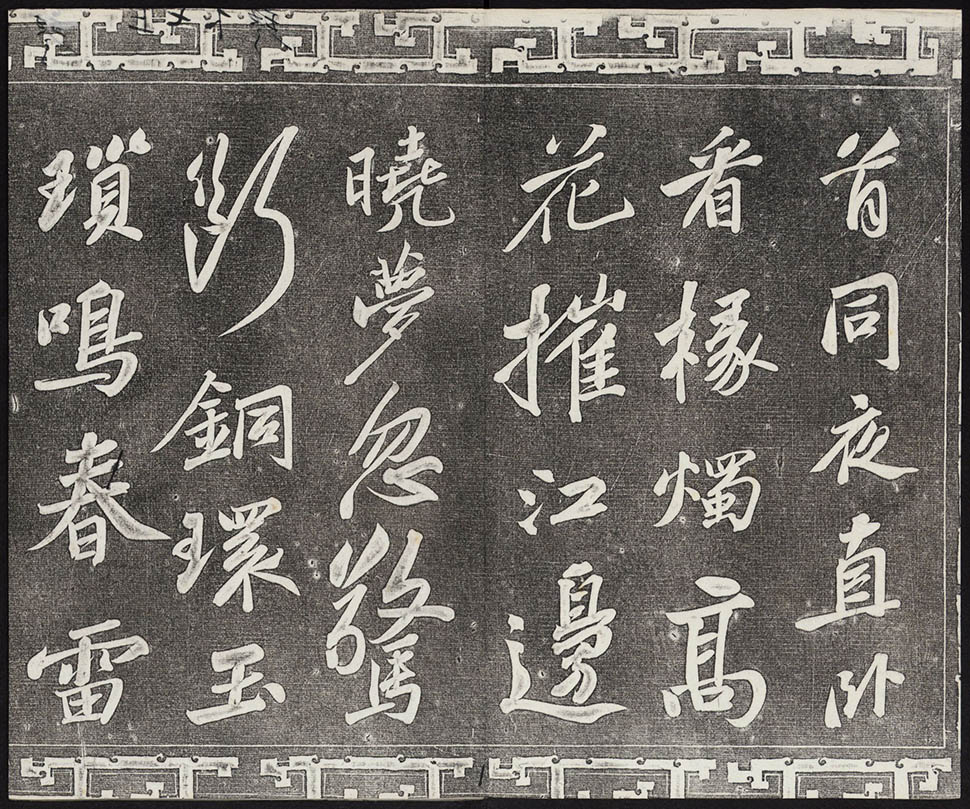 首同夜直卧
看椽燭髙
花摧江邊
曉夢忽驚
斷銅環玉
瑣鳴春雷